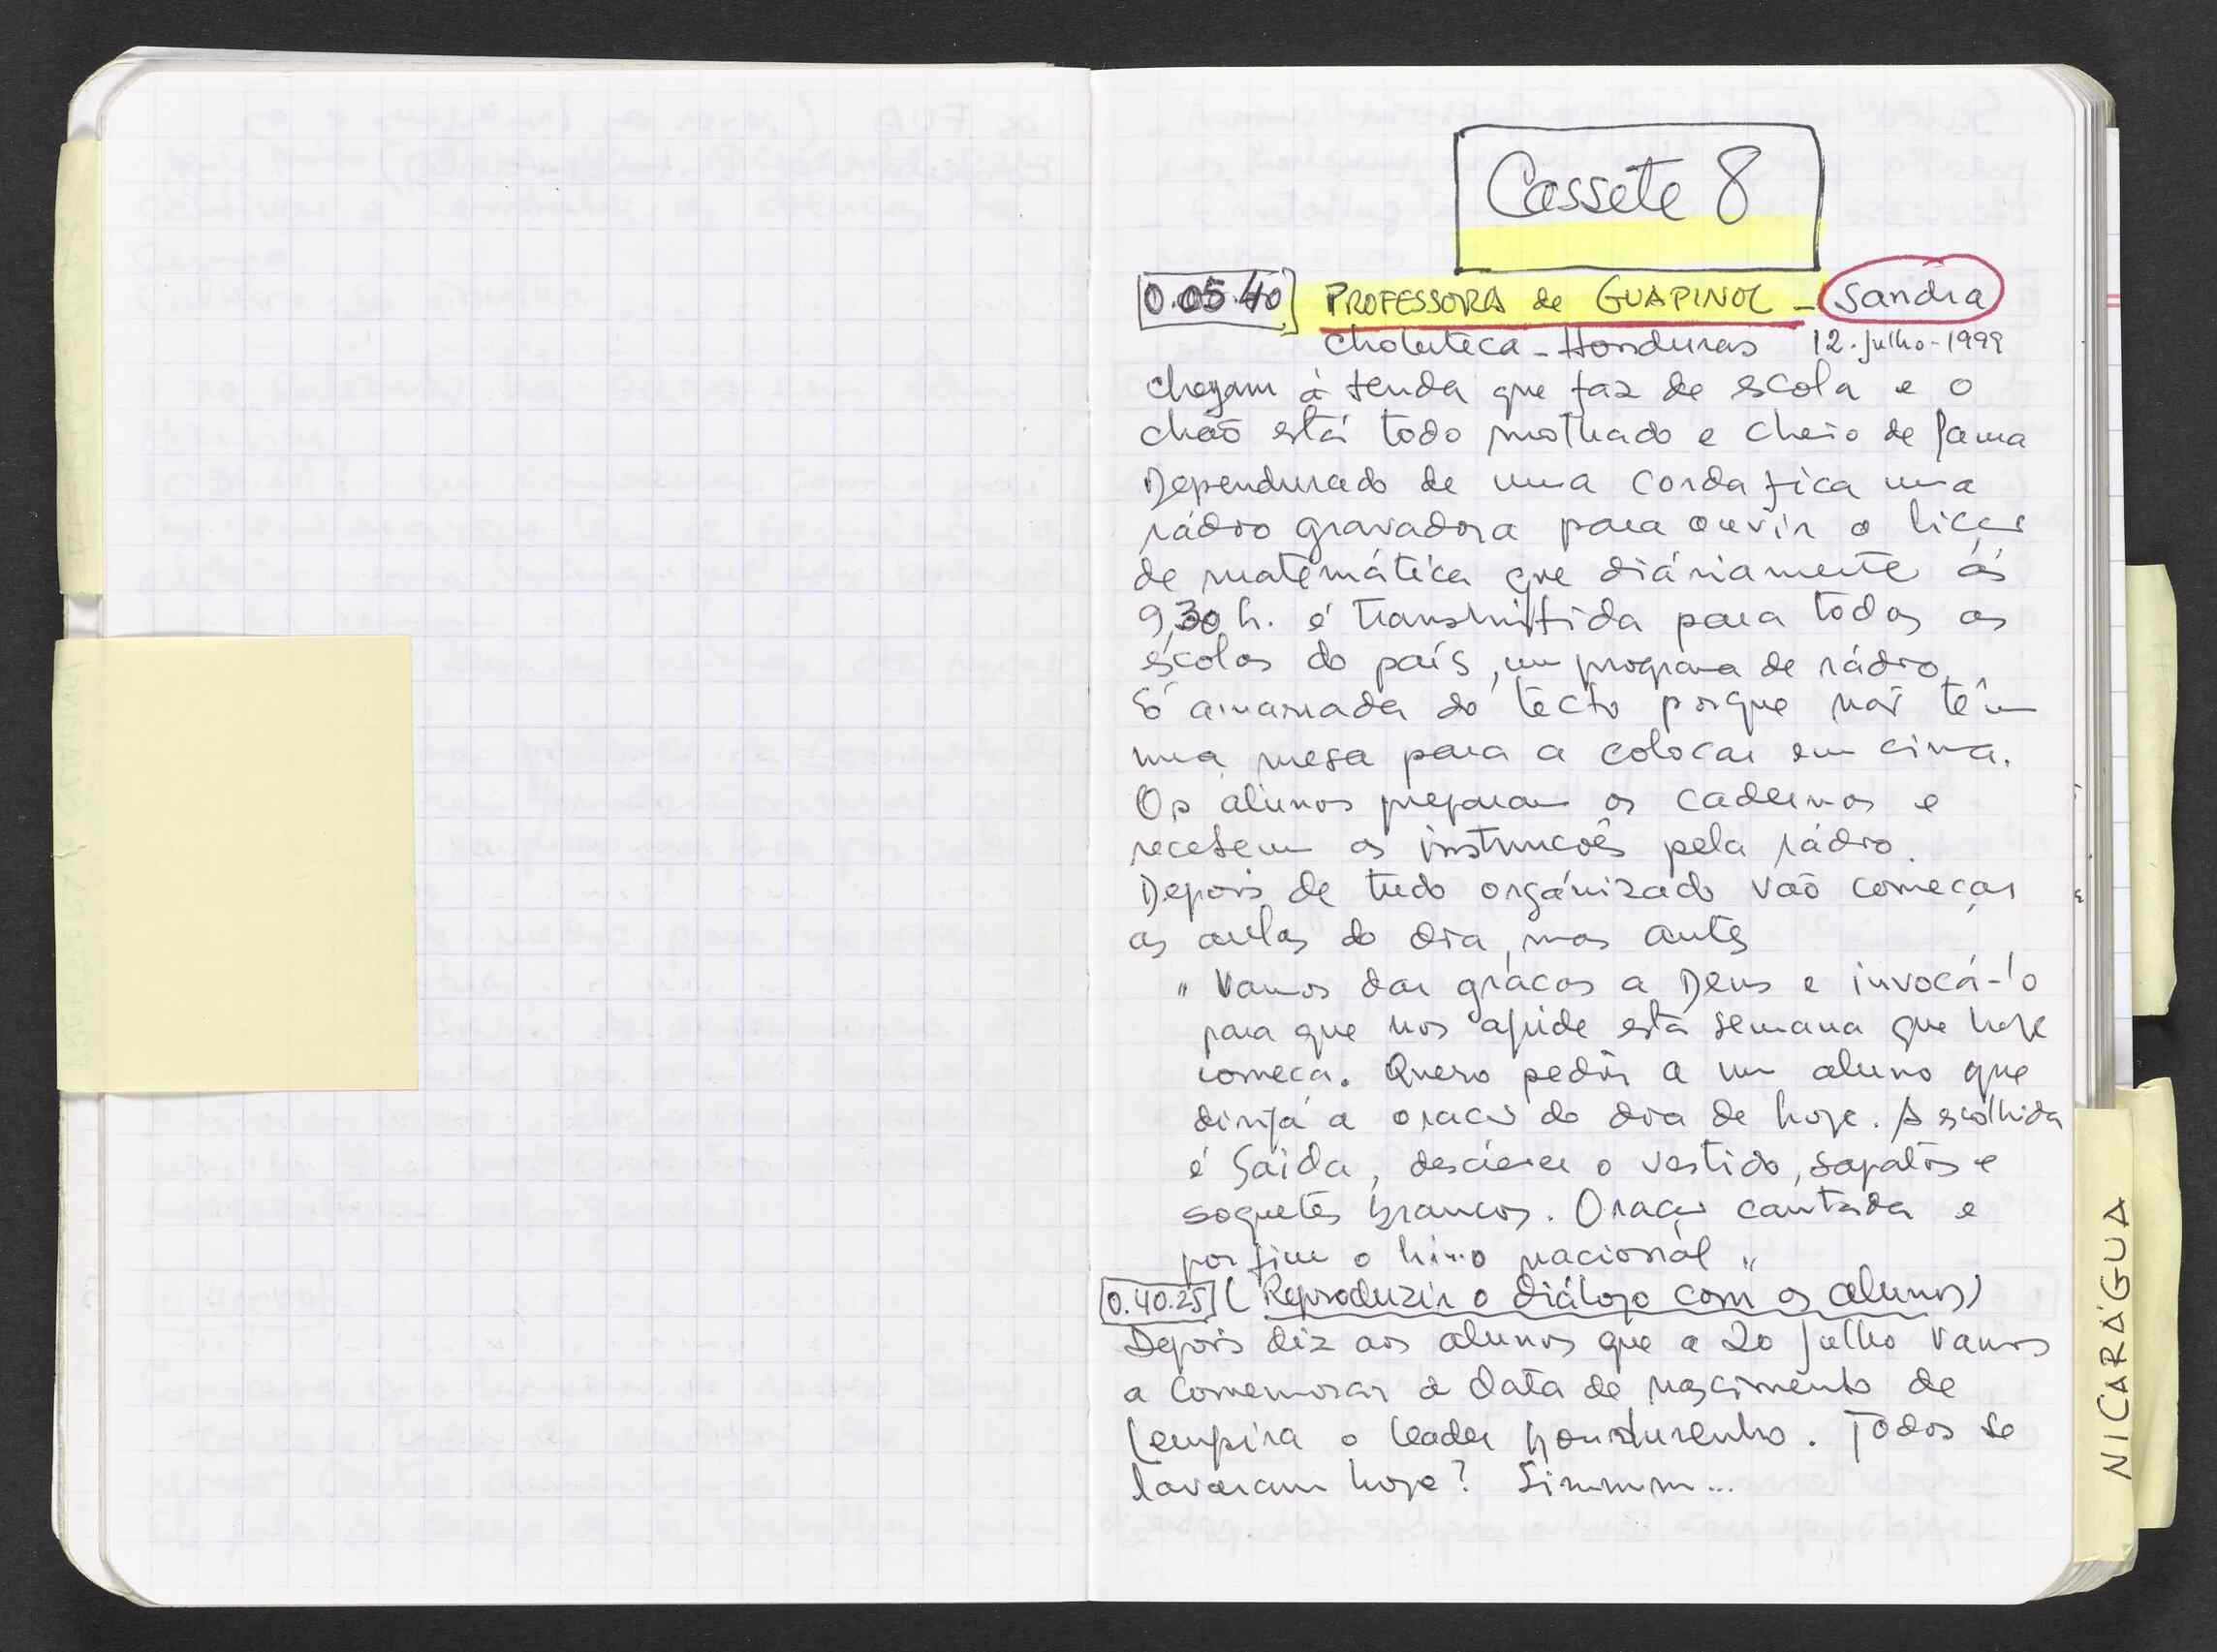 Cassete 8
0.05.40 PROFESSORA de GUAPINOL - Sandra
Choluteca - Honduras 12. Julho - 1999
chegam à tenda que faz de escola e o
chaõ está todo molhado e cheio de lama
Dependurado de uma corda fica uma
rádio gravadora para ouvir a liçaõ
de matemática que diáriamente ás
9,30 h. é transmitida para todas as
escolas do país, um programa de rádio
Só amarrada do tecto porque naõ têm
uma mesa para a colocar em cima.
Os alunos preparam os cadernos e
recebem as instrucoẽs pela rádio.
Depois de tudo organizado vaõ começar
as aulas do dia, mas antes
"Vamos dar graças a Deus e invocá-lo
para que nos ajude esta semana que hoje
começa. Quero pedir a um aluno que
dirija a oracaõ do dia de hoje. A escolhida
é Saida, descrever o vestido, sapatos e
soquetes brancos. Oraçaõ cantada e
por fim o hino nacional"
0.40.25 (Reproduzir o diálogo com os alunos)
Depois diz aos alunos que a 20 Julho vamos
a comemorar a data de nascimento de
Lempira o leader hondurenho. Todos se
lavaram hoje? Simmmm...
NICARÁGUA